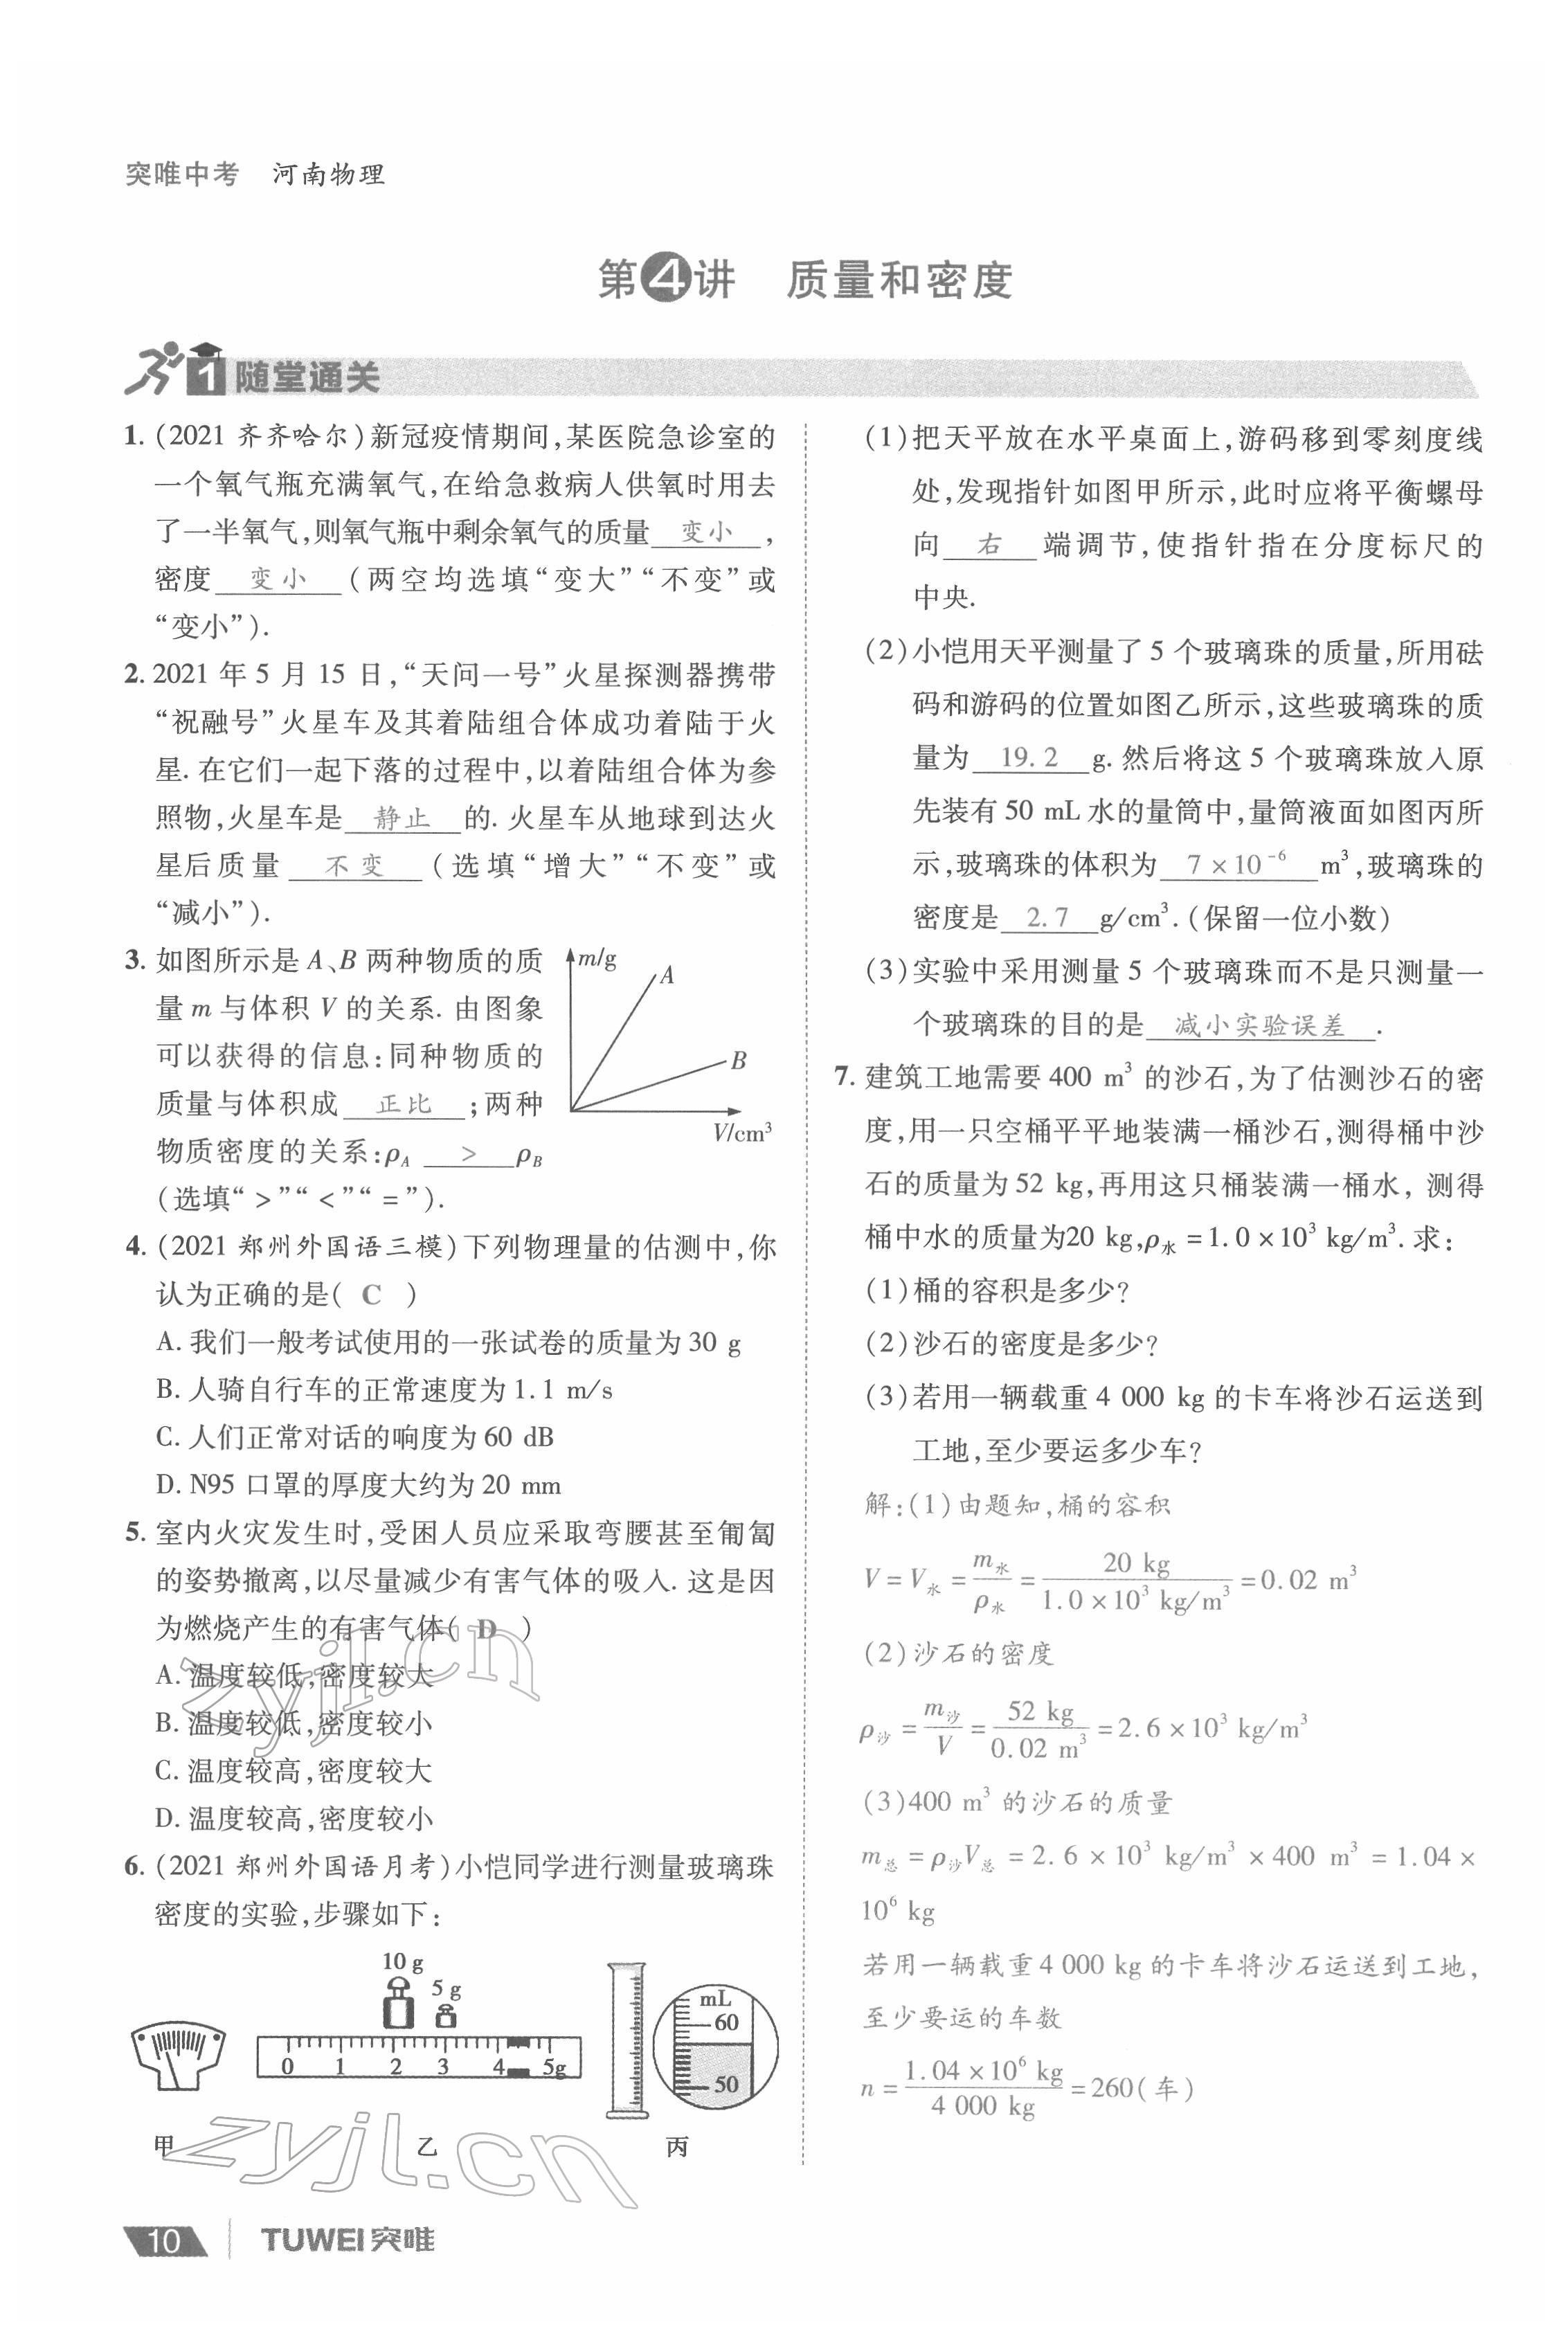 突唯中考 河南物理
第4讲 质量和密度
1 随堂通关
1. (2021 齐齐哈尔)新冠疫情期间,某医院急诊室的
一个氧气瓶充满氧气,在给急救病人供氧时用去
了一半氧气,则氧气瓶中剩余氧气的质量 变小 ,
密度 变小 (两空均选填“变大”“不变”或
“变小”).
2. 2021 年 5 月 15 日,“天问一号”火星探测器携带
“祝融号”火星车及其着陆组合体成功着陆于火
星. 在它们一起下落的过程中,以着陆组合体为参
照物,火星车是 静止 的. 火星车从地球到达火
星后质量 不变 (选填“增大”“不变”或
“减小”).
3. 如图所示是 A、B 两种物质的质
量 m 与体积 V 的关系. 由图象
可以获得的信息:同种物质的
质量与体积成 正比 ;两种
物质密度的关系:ρA > ρB
(选填“>”“<”“=”).
m/g
A
B
V/cm³
4. (2021 郑州外国语三模)下列物理量的估测中,你
认为正确的是( C )
A. 我们一般考试使用的一张试卷的质量为 30 g
B. 人骑自行车的正常速度为 1.1 m/s
C. 人们正常对话的响度为 60 dB
D. N95 口罩的厚度大约为 20 mm
5. 室内火灾发生时,受困人员应采取弯腰甚至匍匐
的姿势撤离,以尽量减少有害气体的吸入. 这是因
为燃烧产生的有害气体( D )
A. 温度较低,密度较大
B. 温度较低,密度较小
C. 温度较高,密度较大
D. 温度较高,密度较小
6. (2021 郑州外国语月考)小恺同学进行测量玻璃珠
密度的实验,步骤如下:
10 g
5 g
0 1 2 3 4 5g
mL
60
50
甲 乙 丙
(1)把天平放在水平桌面上,游码移到零刻度线
处,发现指针如图甲所示,此时应将平衡螺母
向 右 端调节,使指针指在分度标尺的
中央.
(2)小恺用天平测量了 5 个玻璃珠的质量,所用砝
码和游码的位置如图乙所示,这些玻璃珠的质
量为 19.2 g. 然后将这 5 个玻璃珠放入原
先装有 50 mL 水的量筒中,量筒液面如图丙所
示,玻璃珠的体积为 7×10⁻⁶ m³,玻璃珠的
密度是 2.7 g/cm³.(保留一位小数)
(3)实验中采用测量 5 个玻璃珠而不是只测量一
个玻璃珠的目的是 减小实验误差 .
7. 建筑工地需要 400 m³ 的沙石,为了估测沙石的密
度,用一只空桶平平地装满一桶沙石,测得桶中沙
石的质量为 52 kg,再用这只桶装满一桶水, 测得
桶中水的质量为20 kg,ρ水 =1.0×10³ kg/m³. 求:
(1)桶的容积是多少?
(2)沙石的密度是多少?
(3)若用一辆载重 4 000 kg 的卡车将沙石运送到
工地,至少要运多少车?
解:(1)由题知,桶的容积
V=V水=m水/ρ水=20 kg/1.0×10³ kg/m³=0.02 m³
(2)沙石的密度
ρ沙=m沙/V=52 kg/0.02 m³=2.6×10³ kg/m³
(3)400 m³ 的沙石的质量
m总 =ρ沙V总 =2.6×10³ kg/m³×400 m³=1.04×
10⁶ kg
若用一辆载重 4 000 kg 的卡车将沙石运送到工地,
至少要运的车数
n=1.04×10⁶ kg/4 000 kg=260(车)
zyjl.cn
zyjl.cn
10 TUWEI突唯